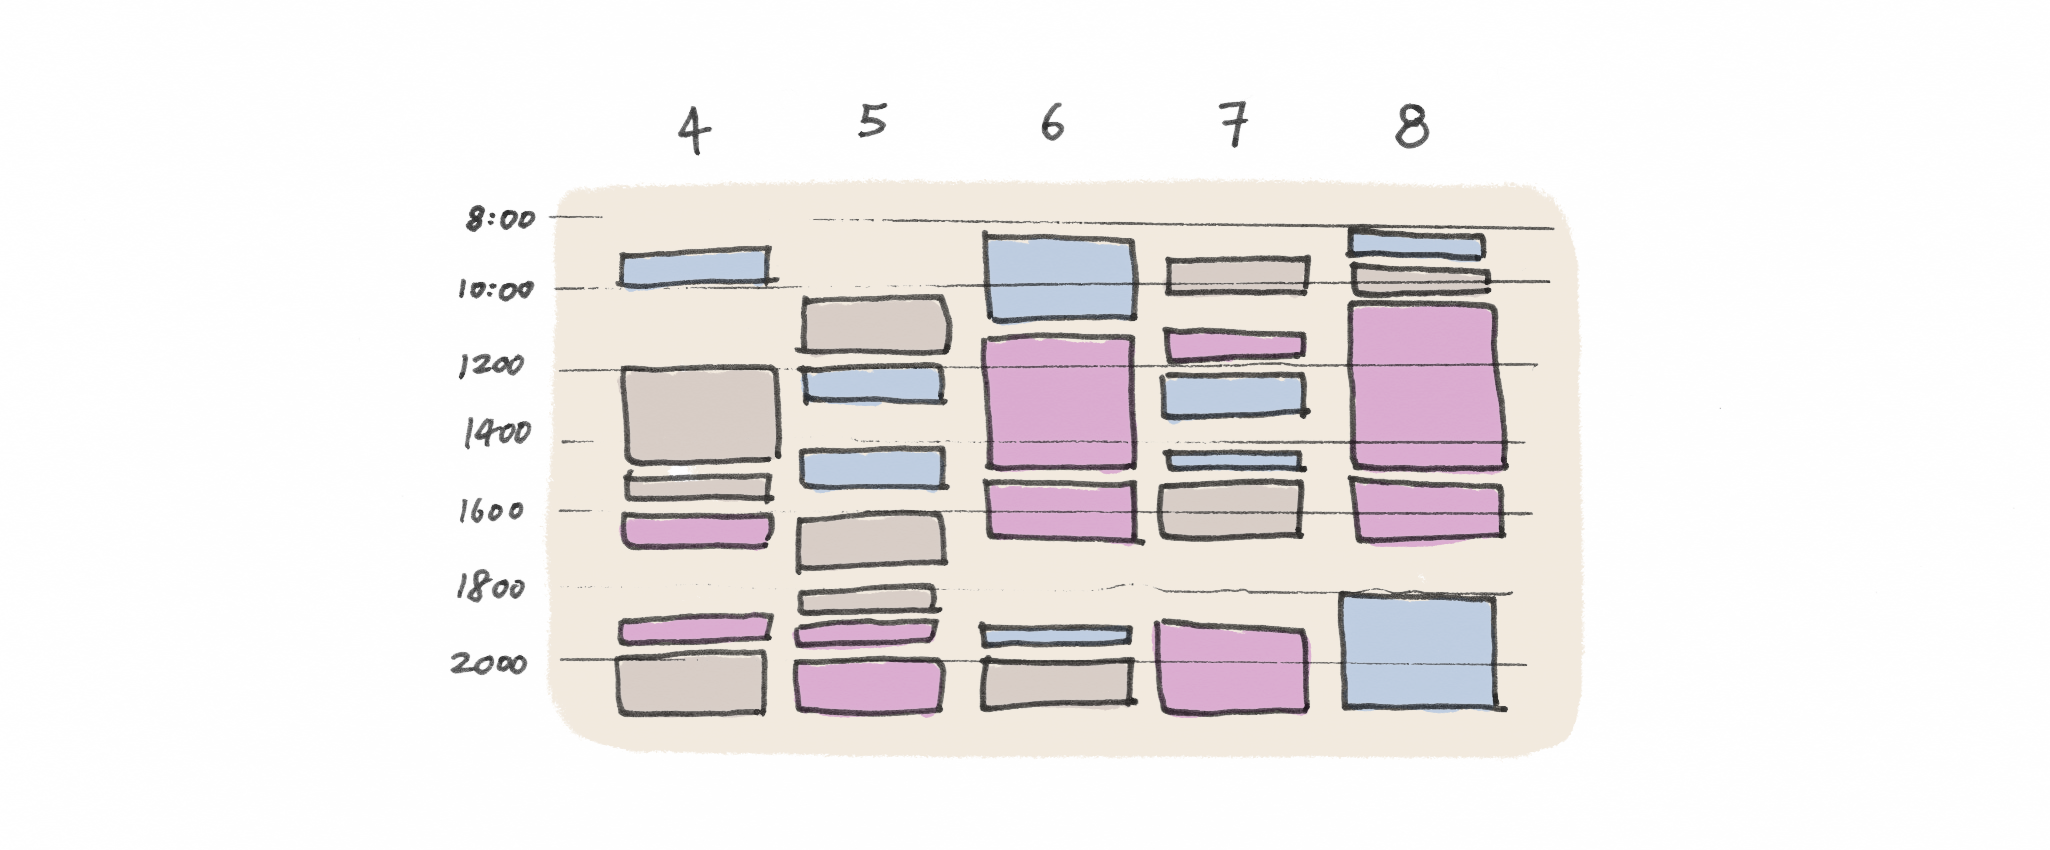 4 5 6 7 8
8:00
10:00
1200
1400
1600
1800
2000